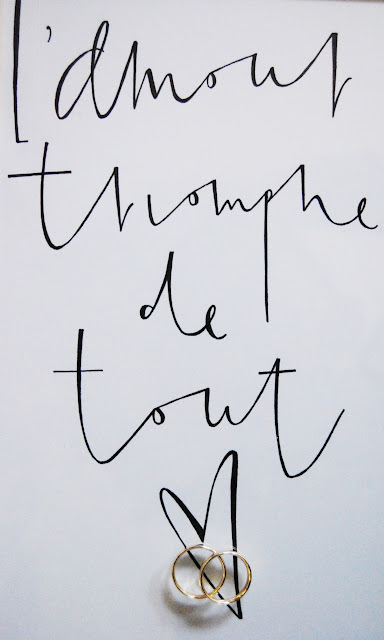 l'amour
triomphe
de
tout